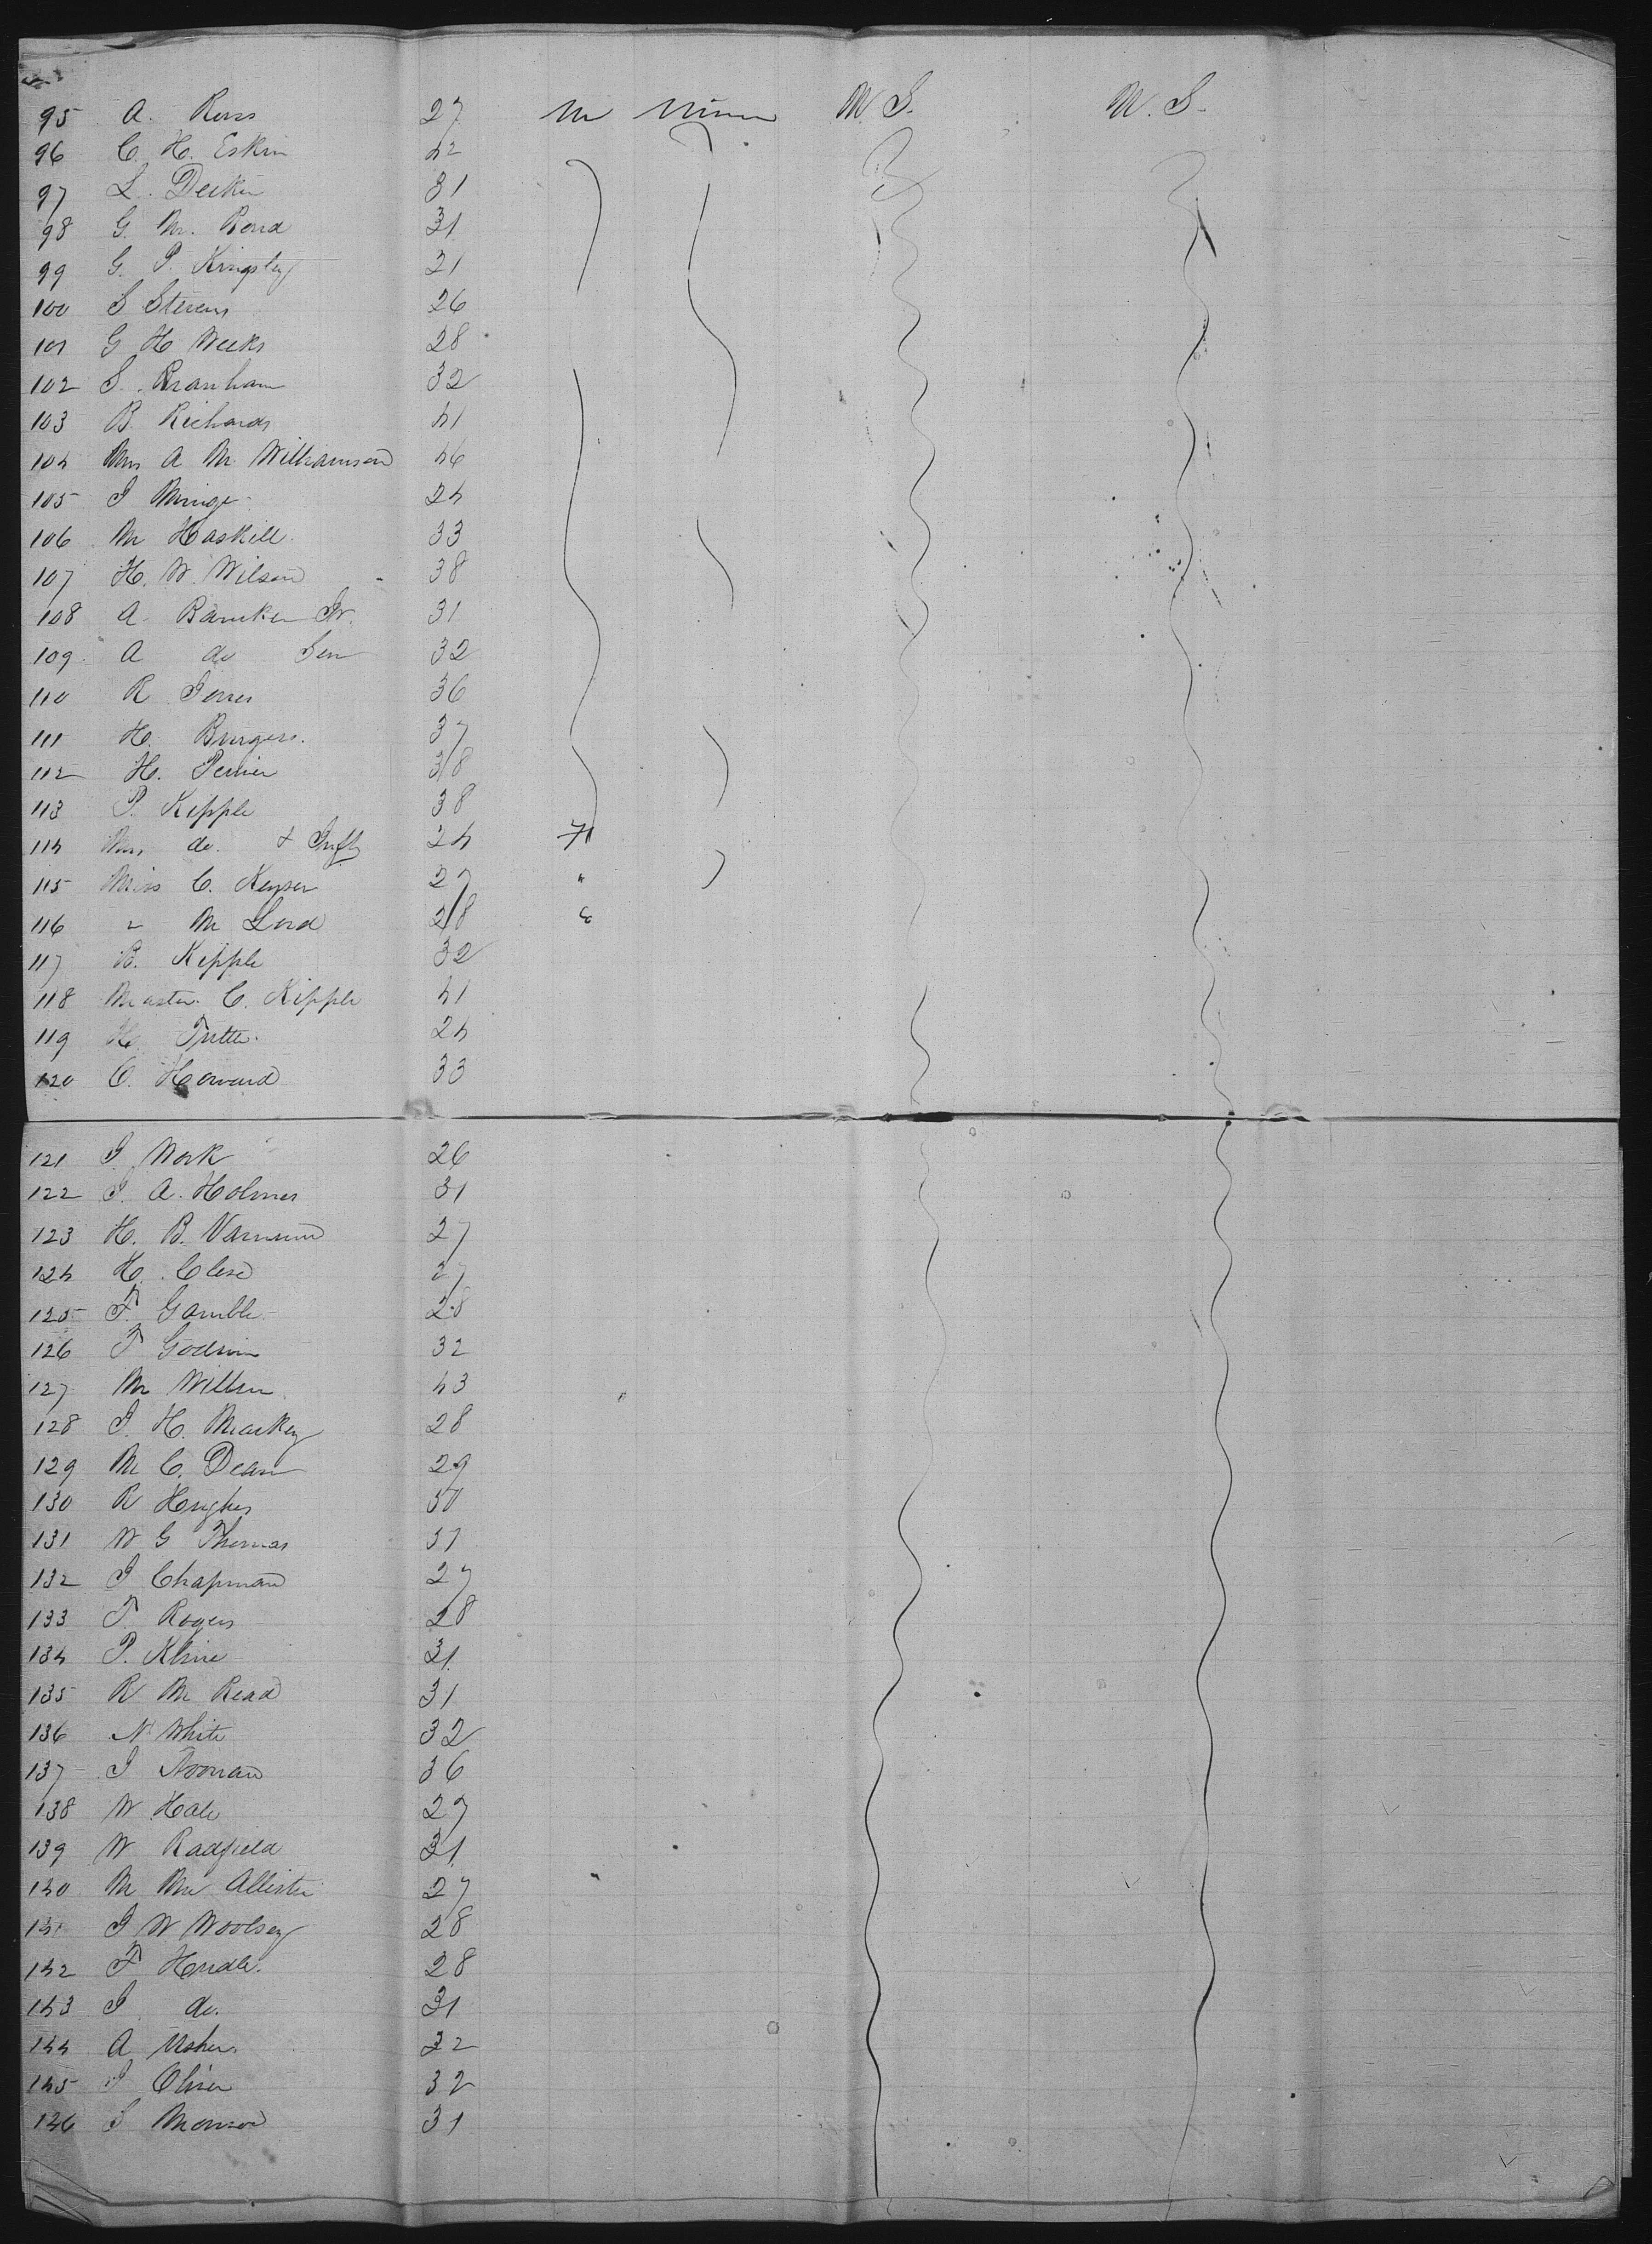 95 A. Ross 27 M Miner U.S. U.S.
96 C. H. Eskin 42
97 L. Decker 31
98 G. M. Bond 31
99 G. P. Kingsley 21
100 S Stevens 26
101 G H Weeks 28
102 S. Branham 32
103 B. Richards 41
104 Mrs A M Williamson 46
105 J Minge 24
106 M Haskill 33
107 H. W. Wilson 38
108 A. Bancker Jr. 31
109 A do Sen 32
110 R Jones 36
111 H. Burgess. 37
112 H. Perrier 38
113 P. Kipple 38
114 Mrs do. & Inft 24 F
115 Miss C. Keyser 27 "
116 " M Lord 28 "
117 B. Kipple 32
118 Master C. Kipple 41
119 H. Tuttle. 24
120 C. Howard 33
121 J. Work 26
122 J. A. Holmes 31
123 H. B. Varnum 27
124 H. Close 27
125 F. Gamble 28
126 T Godwin 32
127 M Willson 43
128 J. H. Mackey 28
129 M C. Dean 29
130 R Hughes 30
131 W G Thomas 31
132 J Chapman 27
133 T. Rogers 28
134 P. Kline 31
135 R M Read 31
136 N White 32
137 J Noonan 36
138 W Hale 27
139 W Radfield 31
140 M Mc Allister 27
141 J W Woolsey 28
142 F Hendle. 28
143 J do. 31
144 A Usher. 32
145 J Oliver 32
146 S Monroe 31